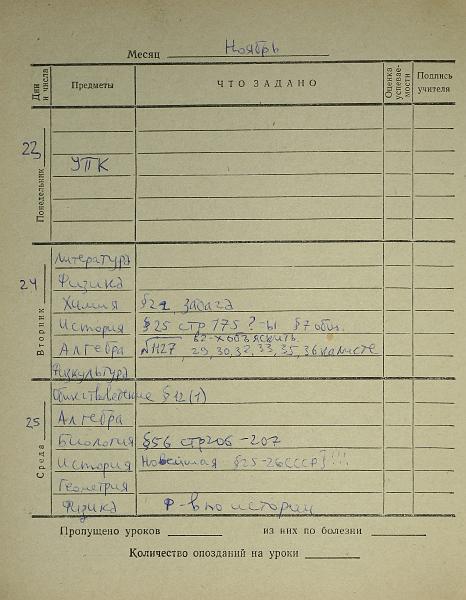 Месяц Ноябрь
Дни и числа Предметы ЧТО ЗАДАНО Оценка успевае- мости Подпись учителя
23 Понедельник
УПК
24 Вторник
Литература
Физика
Химия §24 задача
История §25 стр 175 ?-ы §7 общ.
В2-х объяснить
Алгебра √1127, 29, 30, 32, 33, 35, 36 на листе
Физкультура
25 Среда
Обществоведение §12(1)
Алгебра
Биология §56 стр206-207
История Новейшая §25-26 СССР §!!!
Геометрия
Физика Р-в по истории
Пропущено уроков из них по болезни
Количество опозданий на уроки